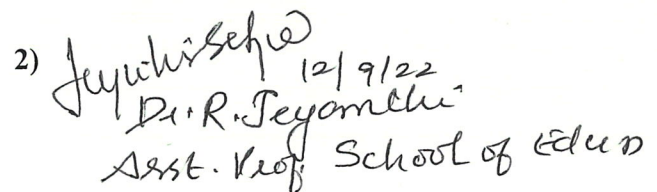 2)
12/9/22
Dr. R. Jeyanthi
Asst. Prof. School of Edun